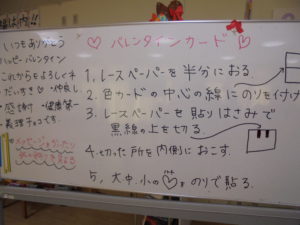 は内!!
いつもありがとう
ハッピーバレンタイン
これからもよろしくネ
だいすき♡ ・仲良し
・感謝 ・健康第一
・義理チョコです
♡ バレンタインカード ♡
1, レースペーパーを半分におる.
2. 色カードの中心の線にのりを付け
3. レースペーパーを貼りはさみで
黒線の上を切る
4.切った所を内側におこす.
5, 大.中.小の♡を のりで貼る.